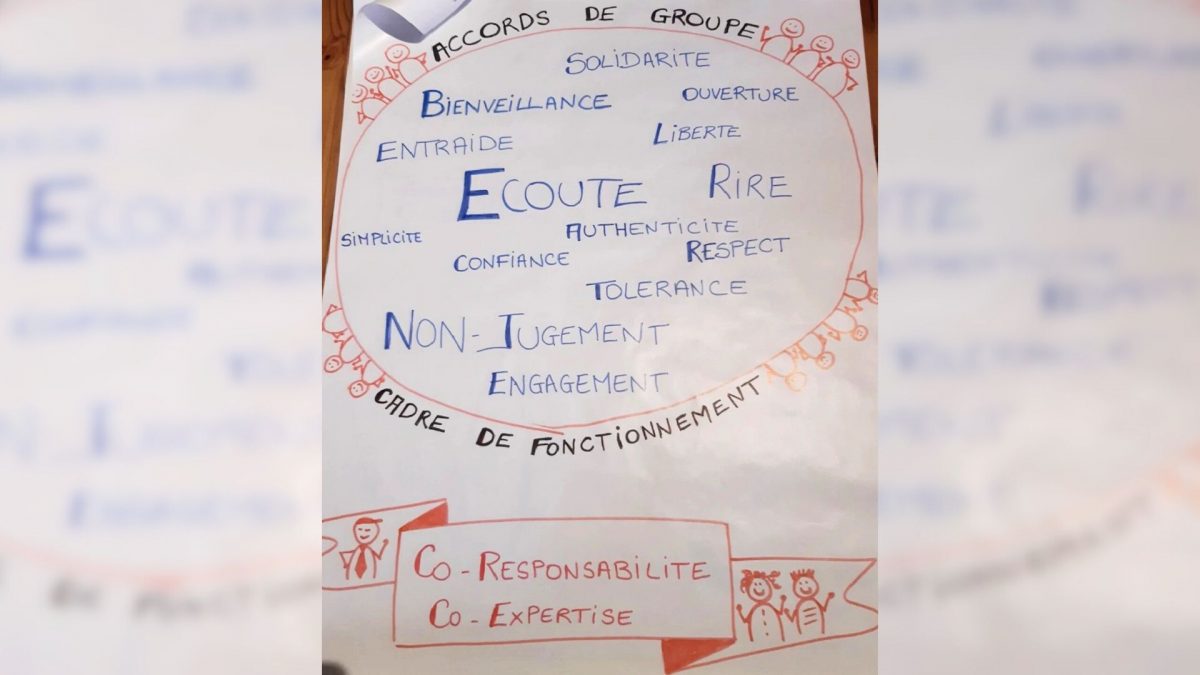 ACCORDS DE GROUPE
SOLIDARITE
BIENVEILLANCE
OUVERTURE
ENTRAIDE
LIBERTE
ECOUTE
RIRE
SIMPLICITE
AUTHENTICITE
CONFIANCE
RESPECT
TOLERANCE
NON-JUGEMENT
ENGAGEMENT
CADRE DE FONCTIONNEMENT
CO-RESPONSABILITE
CO-EXPERTISE